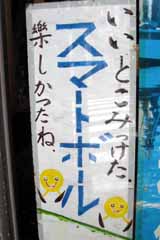 いいとこみつけた.
スマートボール
樂しかつたね.